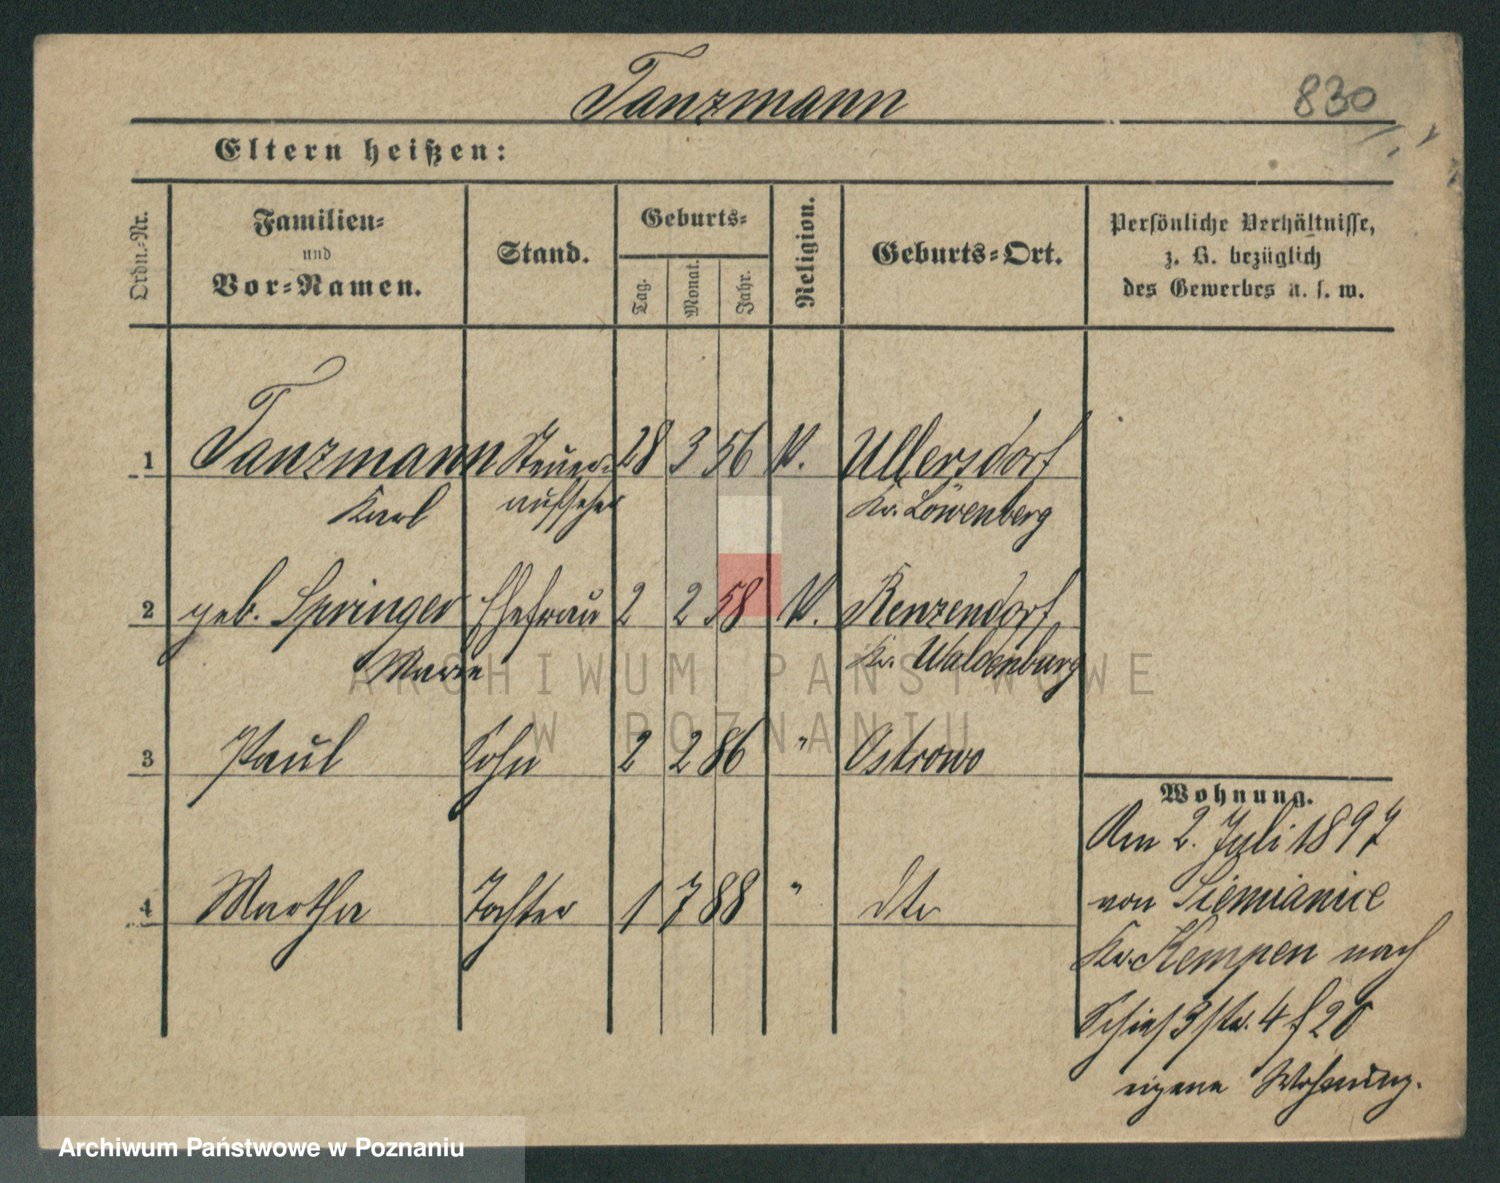 Tanzmann
830
Eltern heißen:
Ordn.-Nr.
Familien-
und
Vor-Namen.
Stand.
Geburts-
Tag.
Monat.
Jahr.
Religion.
Geburts-Ort.
Persönliche Verhältnisse,
z. B. bezüglich
des Gewerbes u. s. w.
1 Tanzmann Steuer- 28 3 56 Ullersdorf
Karl aufseher Kr. Löwenberg
2 geb. Springer Ehefrau 2 2 58 Renzendorf
Marie Kr. Waldenburg
3 Paul Sohn 2 2 86 " Ostrowo
4 Martha Tochter 1 7 88 " dto
Wohnung.
Am 2. Juli 1897
von Siemianice
Kr. Kempen nach
4
eigene Wohnung.
ARCHIWUM PAŃSTWOWE
W POZNANIU
Archiwum Państwowe w Poznaniu